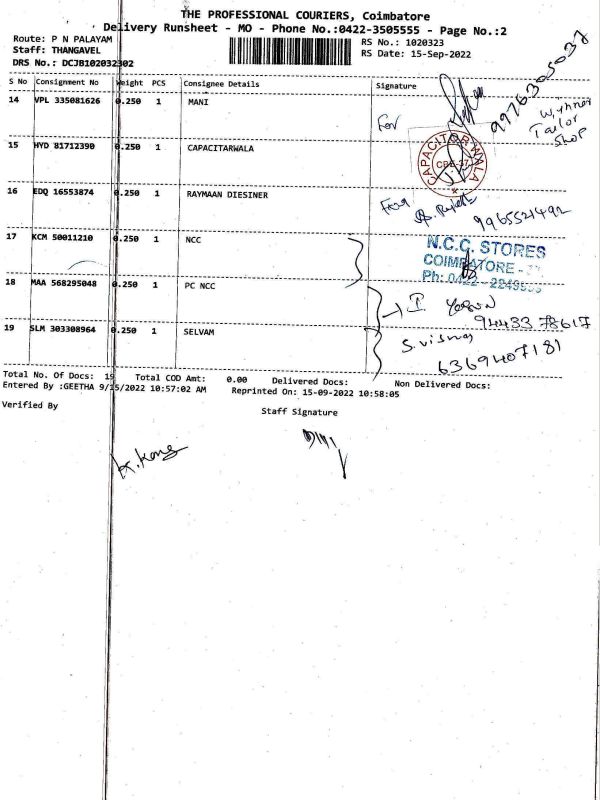 THE PROFESSIONAL COURIERS, Coimbatore
Delivery Runsheet - MO - Phone No.:0422-3505555 - Page No.:2
Route: P N PALAYAM
Staff: THANGAVEL
DRS No.: DCJB102032302
RS No.: 1020323
RS Date: 15-Sep-2022
S No Consignment No Weight PCS Consignee Details Signature
14 VPL 335081626 0.250 1 MANI
For
9976305037
Wynner
Tailor
Shop
15 HYD 81712390 0.250 1 CAPACITARWALA
CAPACITARWALA
16 EDQ 16553874 0.250 1 RAYMAAN DIESINER
9965521492
17 KCM 50011210 0.250 1 NCC
N.C.C. STORES
COIMBATORE -
Ph: 0422 -
18 MAA 568295048 0.250 1 PC NCC
94433 78617
19 SLM 303308964 0.250 1 SELVAM
6369407181
Total No. Of Docs: 19 Total COD Amt: 0.00 Delivered Docs: Non Delivered Docs:
Entered By :GEETHA 9/15/2022 10:57:02 AM Reprinted On: 15-09-2022 10:58:05
Verified By
Staff Signature